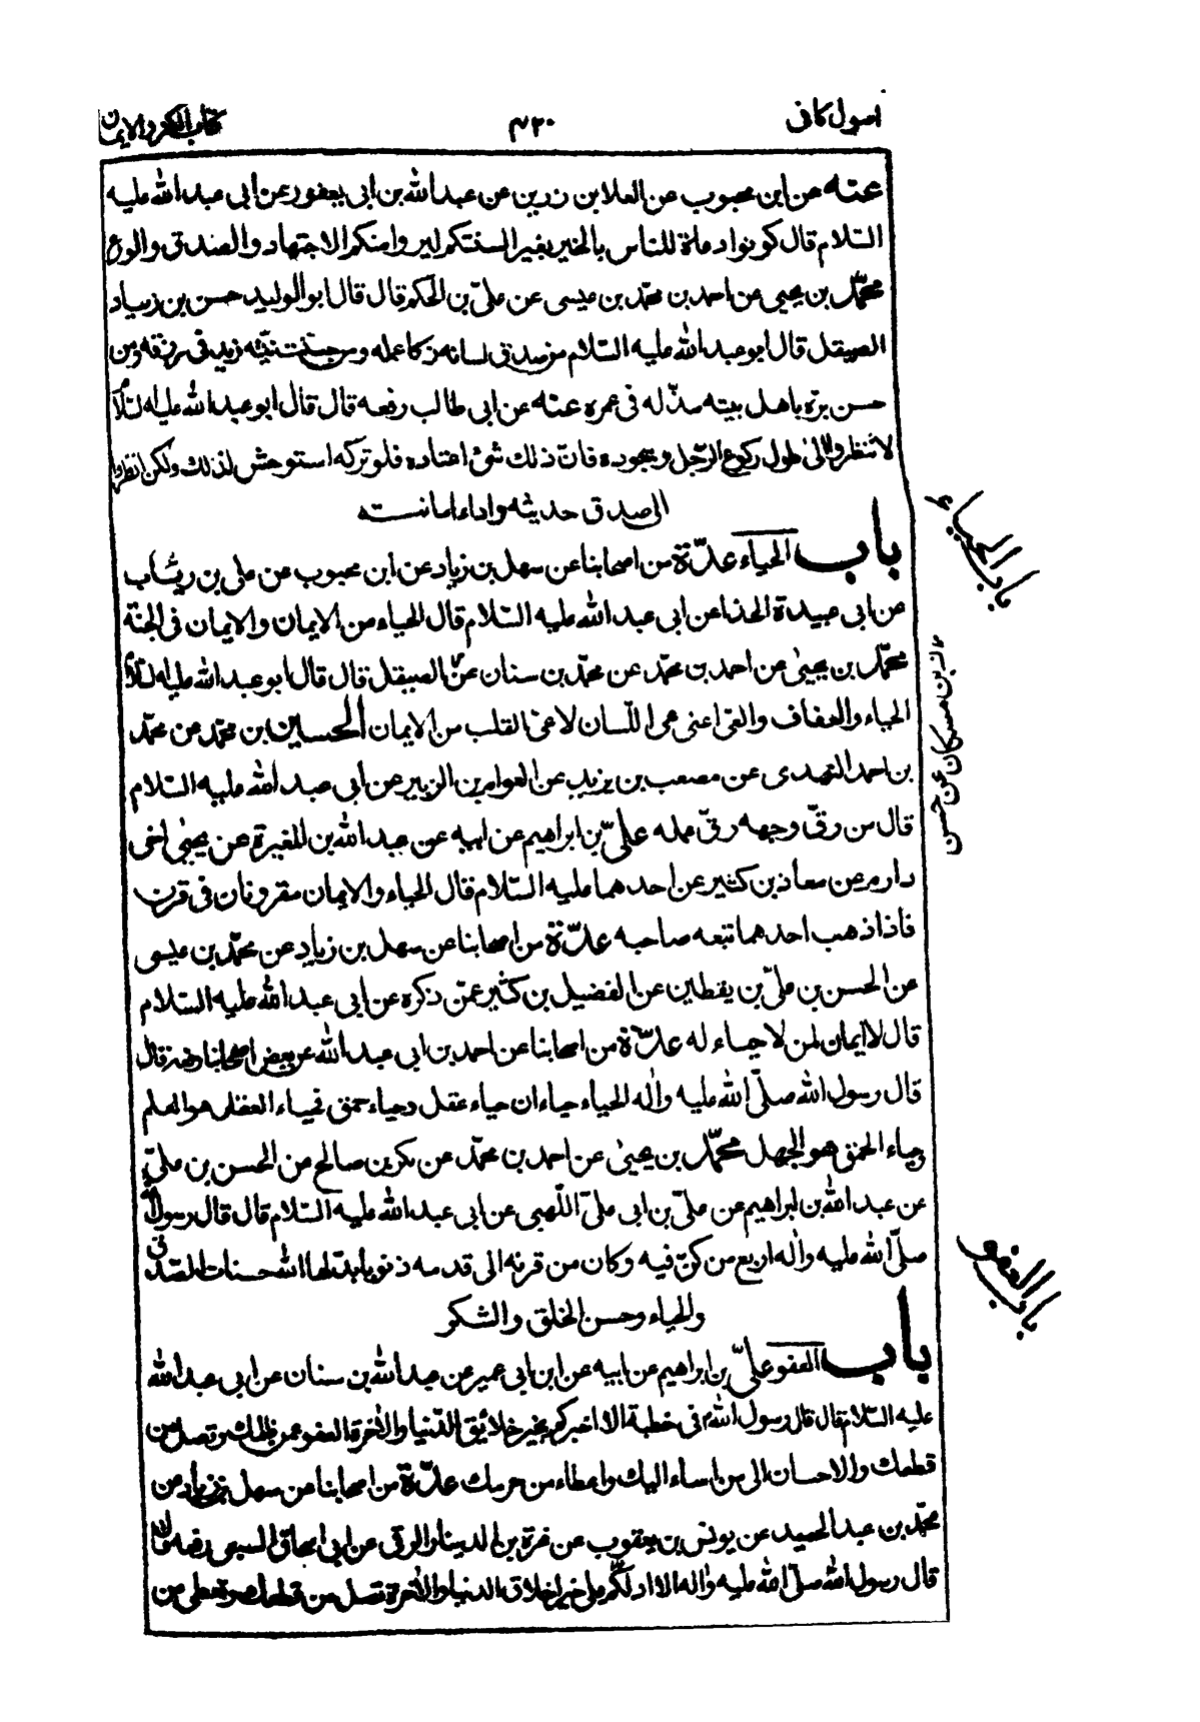 اصول کافی
۴۲۰
کتاب الکفر والایمان
عنه عن ابن محبوب عن العلا بن رزین عن عبد الله بن ابی یعفور عن ابی عبد الله علیه
السّلام قال کونوا دعاة للناس بالخیر بغیر السنتکم لیروا منکم الاجتهاد والصدق والورع
محمّد بن یحیی عن احمد بن محمّد بن عیسی عن علیّ بن الحکم قال قال ابو الولید حسن بن زیاد
الصیقل قال ابو عبد الله علیه السّلام من صدق لسانه زکا عمله ومن حسنت نیّته زید فی رزقه ومن
حسن برّه باهل بیته مدّ له فی عمره عنه عن ابی طالب رفعه قال قال ابو عبد الله علیه السّلام
لا تنظروا الی طول رکوع الرّجل وسجوده فانّ ذلک شیء اعتاده فلو ترکه استوحش لذلک ولکن انظروا
الی صدق حدیثه واداء امانته
باب الحیاء عدّة من اصحابنا عن سهل بن زیاد عن ابن محبوب عن علی بن رئاب
عن ابی عبیدة الحذا عن ابی عبد الله علیه السّلام قال الحیاء من الایمان والایمان فی الجنّة
محمّد بن یحیی عن احمد بن محمّد عن محمّد بن سنان عن الصیقل قال قال ابو عبد الله علیه السّلام
الحیاء والعفاف والعیّ اعنی عیّ اللّسان لا عیّ القلب من الایمان الحسین بن محمّد عن محمّد
بن احمد النهدی عن مصعب بن یزید عن العوام بن الزبیر عن أبی عبد الله علیه السّلام
قال من رقّ وجهه رقّ عمله علیّ بن ابراهیم عن ابیه عن عبد الله بن المغیرة عن یحیی اخی
دارم عن معاذ بن کثیر عن احدهما علیه السّلام قال الحیاء والایمان مقرونان فی قرن
فاذا ذهب احدهما تبعه صاحبه عدّة من اصحابنا عن سهل بن زیاد عن محمّد بن عیسی
عن الحسن بن علیّ بن یقطین عن الفضیل بن کثیر عمّن ذکره عن ابی عبد الله علیه السّلام
قال لا ایمان لمن لا حیاء له عدّة من اصحابنا عن احمد بن ابی عبد الله عن بعض اصحابنا رفعه قال
قال رسول الله صلّی الله علیه واله الحیاء حیاءان حیاء عقل وحیاء حمق فحیاء العقل هو العلم
وحیاء الحمق هو الجهل محمّد بن یحیی عن احمد بن محمّد عن بکر بن صالح عن الحسن بن علیّ
عن عبد الله بن ابراهیم عن علیّ بن ابی علیّ اللّهبی عن ابی عبد الله علیه السّلام قال قال رسول الله
صلّی الله علیه واله اربع من کنّ فیه وکان من قرنه الی قدمه ذنوبا بدّلها الله حسنات الصّدق
والحیاء وحسن الخلق والشکر
باب العفو علیّ بن ابراهیم عن ابیه عن ابن ابی عمیر عن عبد الله بن سنان عن ابی عبد الله
علیه السّلام قال قال رسول الله ص فی خطبة الا اخبرکم بخیر خلائق الدّنیا والاخرة العفو عمن ظلمک وتصل من
قطعک والاحسان الی من اساء الیک واعطاء من حرمک عدّة من اصحابنا عن سهل بن زیاد عن
محمّد بن عبد الحمید عن یونس بن یعقوب عن غرة بن الدینار الرقی عن ابی اسحاق السبیعی رفعه قال
قال رسول الله صلّی الله علیه واله الا ادلّکم علی خیر اخلاق الدنیا والاخرة تصل من قطعک وتعطی من
باب الحیاء
عن ابن مسکان عن حسن
باب العفو